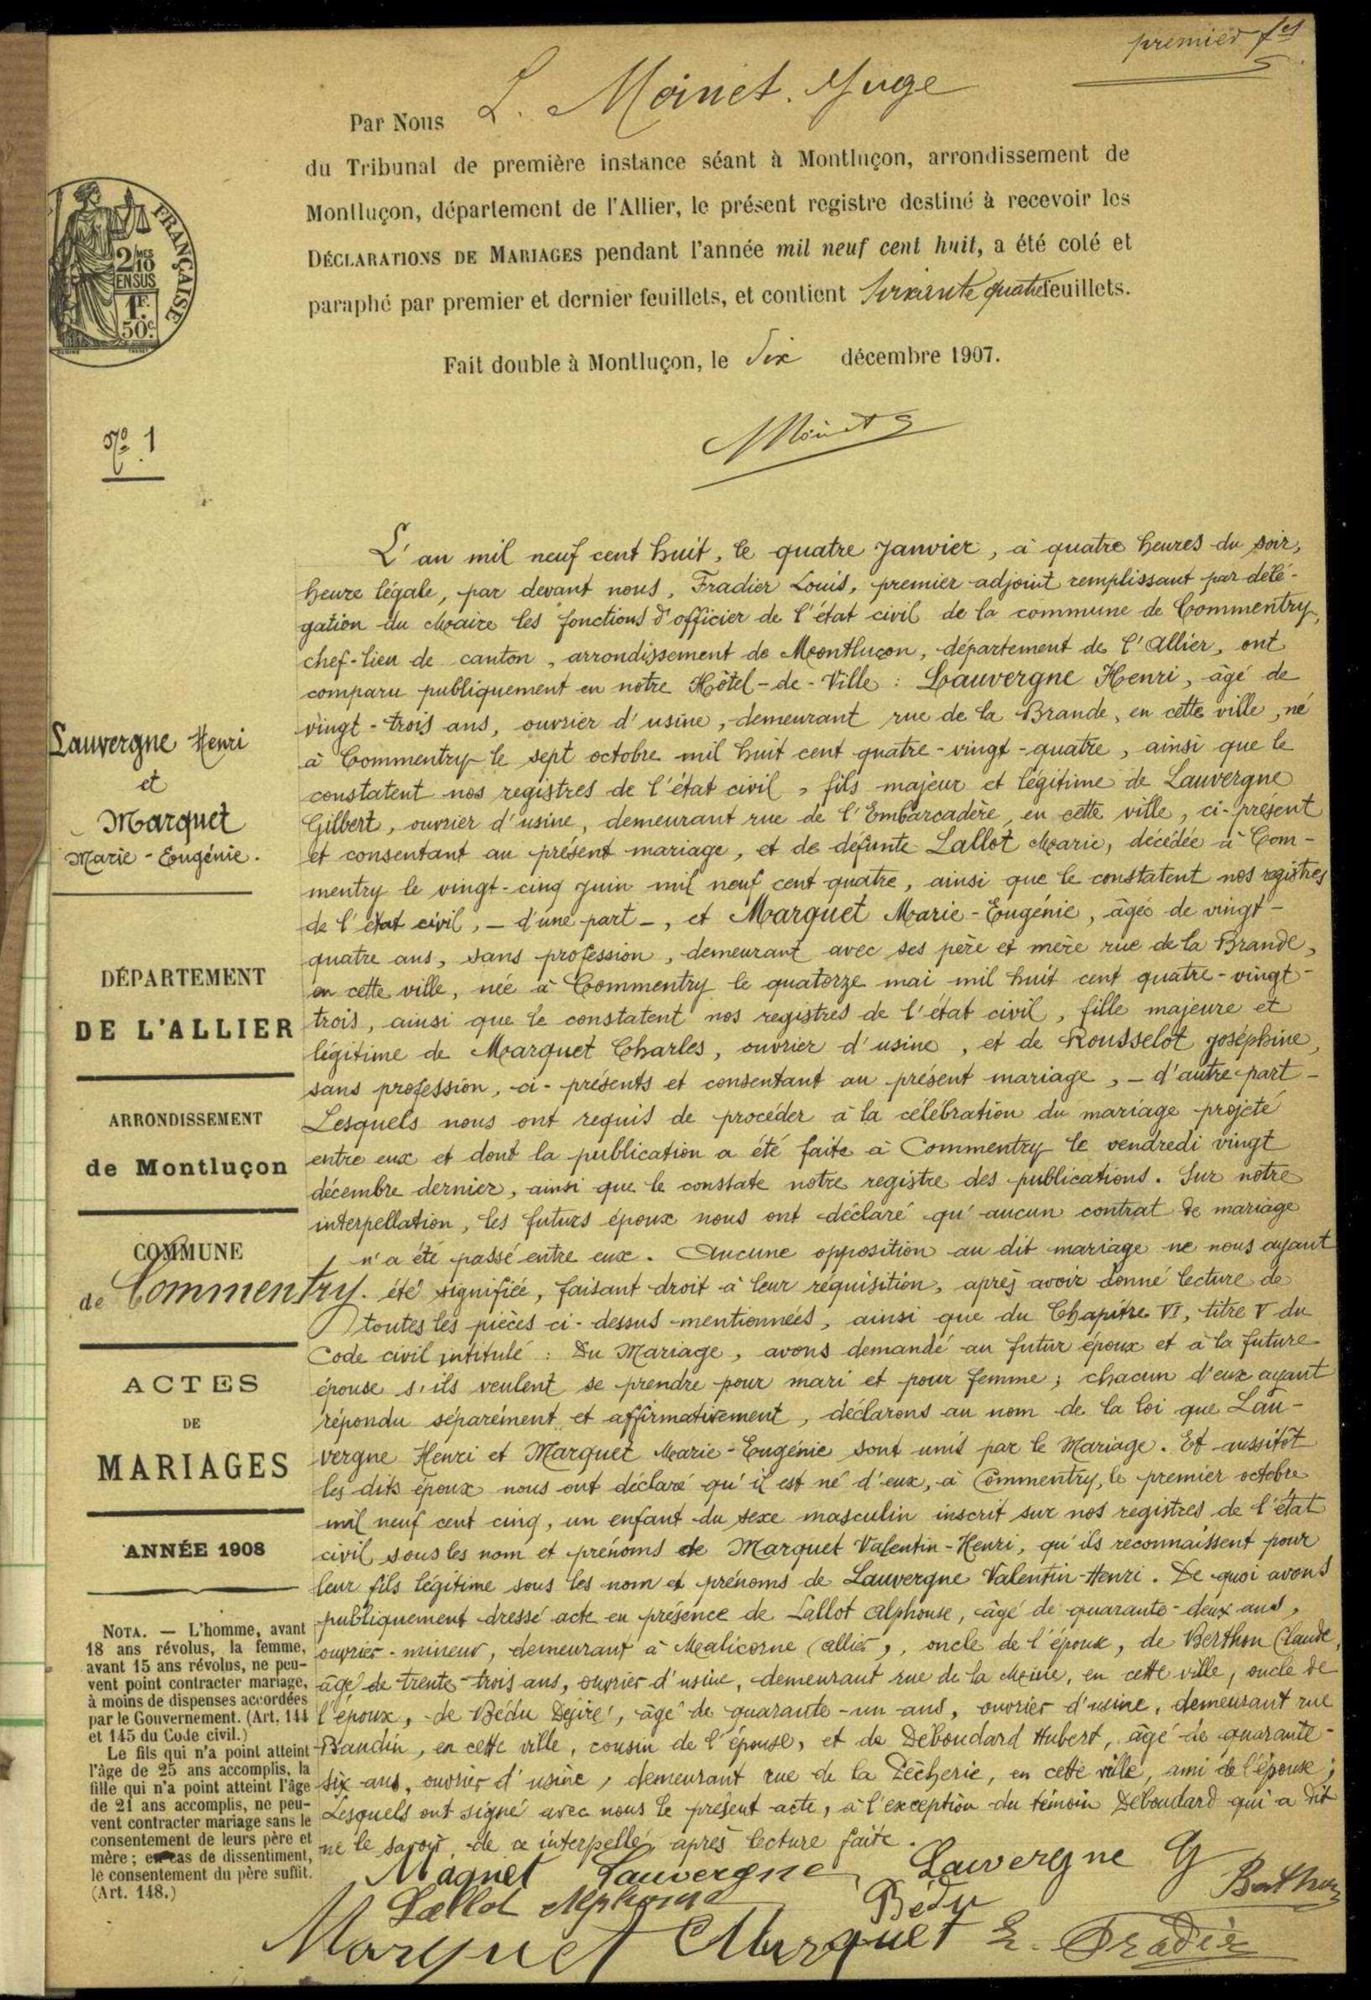 premier fet
Par Nous L. Moinet. Juge
du Tribunal de première instance séant à Montluçon, arrondissement de
Montluçon, département de l'Allier, le présent registre destiné à recevoir les
DÉCLARATIONS DE MARIAGES pendant l'année mil neuf cent huit, a été coté et
paraphé par premier et dernier feuillets, et contient soixante quatre feuillets.
Fait double à Montluçon, le six décembre 1907.
Moinet
FRANÇAISE
2/10 MES
EN SUS
1F.
50c.
No 1
L'an mil neuf cent huit, le quatre Janvier, à quatre heures du soir,
heure légale, par devant nous, Fradier Louis, premier adjoint remplissant par délé-
gation du Maire les fonctions d'officier de l'état civil de la commune de Commentry,
chef-lieu de canton, arrondissement de Montluçon, département de l'Allier, ont
comparu publiquement en notre Hôtel-de-Ville : Lauvergne Henri, âgé de
vingt-trois ans, ouvrier d'usine, demeurant rue de la Brande, en cette ville, né
à Commentry le sept octobre mil huit cent quatre-vingt-quatre, ainsi que le
constatent nos registres de l'état civil, fils majeur et légitime de Lauvergne
Gilbert, ouvrier d'usine, demeurant rue de l'Embarcadère, en cette ville, ci-présent
et consentant au présent mariage, et de défunte Lallot Marie, décédée à Com-
mentry le vingt-cinq Juin mil neuf cent quatre, ainsi que le constatent nos registres
de l'état civil, - d'une part -, et Marquet Marie-Eugénie, âgée de vingt-
quatre ans, sans profession, demeurant avec ses père et mère rue de la Brande,
en cette ville, née à Commentry le quatorze mai mil huit cent quatre-vingt-
trois, ainsi que le constatent nos registres de l'état civil, fille majeure et
légitime de Marquet Charles, ouvrier d'usine, et de Rousselot Joséphine,
sans profession, ci-présents et consentant au présent mariage, - d'autre part -
Lesquels nous ont requis de procéder à la célébration du mariage projeté
entre eux et dont la publication a été faite à Commentry le vendredi vingt
décembre dernier, ainsi que le constate notre registre des publications. Sur notre
interpellation, les futurs époux nous ont déclaré qu'aucun contrat de mariage
n'a été passé entre eux. Aucune opposition au dit mariage ne nous ayant
été signifiée, faisant droit à leur réquisition, après avoir donné lecture de
toutes les pièces ci-dessus mentionnées, ainsi que du Chapitre VI, titre V du
Code civil intitulé : Du Mariage, avons demandé au futur époux et à la future
épouse s'ils veulent se prendre pour mari et pour femme ; chacun d'eux ayant
répondu séparément et affirmativement, déclarons au nom de la loi que Lau-
vergne Henri et Marquet Marie-Eugénie sont unis par le Mariage. Et aussitôt
les dits époux nous ont déclaré qu'il est né d'eux, à Commentry, le premier octobre
mil neuf cent cinq, un enfant du sexe masculin inscrit sur nos registres de l'état
civil sous les nom et prénoms de Marquet Valentin-Henri, qu'ils reconnaissent pour
leur fils légitime sous les nom et prénoms de Lauvergne Valentin-Henri. De quoi avons
publiquement dressé acte en présence de Lallot Alphonse, âgé de quarante-deux ans,
ouvrier-mineur, demeurant à Malicorne (Allier), oncle de l'époux, de Berthon Claude,
âgé de trente-trois ans, ouvrier d'usine, demeurant rue de la Mine, en cette ville, oncle de
l'époux, de Bédu Désiré, âgé de quarante-un-ans, ouvrier d'usine, demeurant rue
Baudin, en cette ville, cousin de l'épouse, et de Déboudard Hubert, âgé de quarante-
six ans, ouvrier d'usine, demeurant rue de la Pêcherie, en cette ville, ami de l'épouse ;
Lesquels ont signé avec nous le présent acte, à l'exception du témoin Déboudard qui a dit
ne le savoir, de ce interpellé, après lecture faite.
Maquet Lauvergne Lauvergne G Berthon
Lallot Alphonse Bédu
Marquet Marquet L. Fradier
Lauvergne Henri
et
Marquet
Marie-Eugénie.
DÉPARTEMENT
DE L'ALLIER
ARRONDISSEMENT
de Montluçon
COMMUNE
de Commentry.
ACTES
DE
MARIAGES
ANNÉE 1908
NOTA. — L'homme, avant
18 ans révolus, la femme,
avant 15 ans révolus, ne peu-
vent point contracter mariage,
à moins de dispenses accordées
par le Gouvernement. (Art. 144
et 145 du Code civil.)
Le fils qui n'a point atteint
l'âge de 25 ans accomplis, la
fille qui n'a point atteint l'âge
de 21 ans accomplis, ne peu-
vent contracter mariage sans le
consentement de leurs père et
mère ; en cas de dissentiment,
le consentement du père suffit.
(Art. 148.)